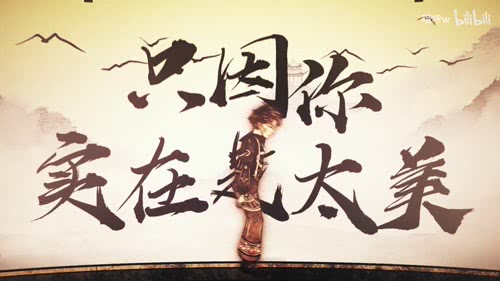 只因你
实在是太美
bilibili